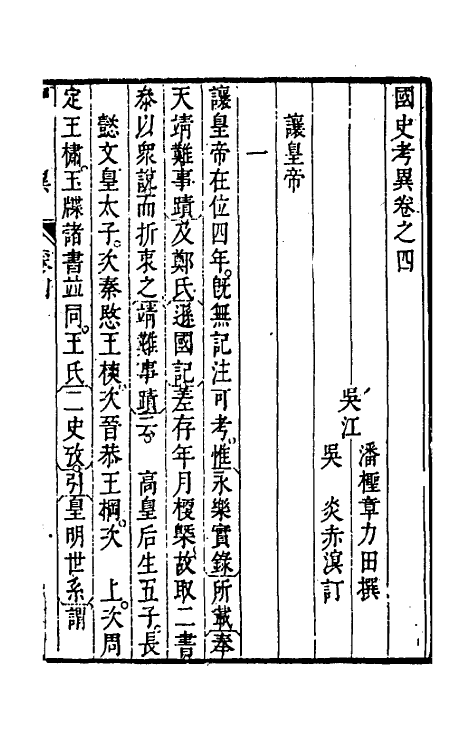 國史考異卷之四
吳江
潘檉章力田撰
吳炎赤溟訂
讓皇帝
一
讓皇帝在位四年既無記注可考惟永樂實錄所載奉
天靖難事蹟及鄭氏遜國記差存年月梗槩故取二書
叅以衆說而折衷之靖難事蹟云 高皇后生五子長
懿文皇太子次秦愍王樉次晉恭王棡次 上次周
定王橚玉牒諸書並同王氏二史攷引皇明世系謂